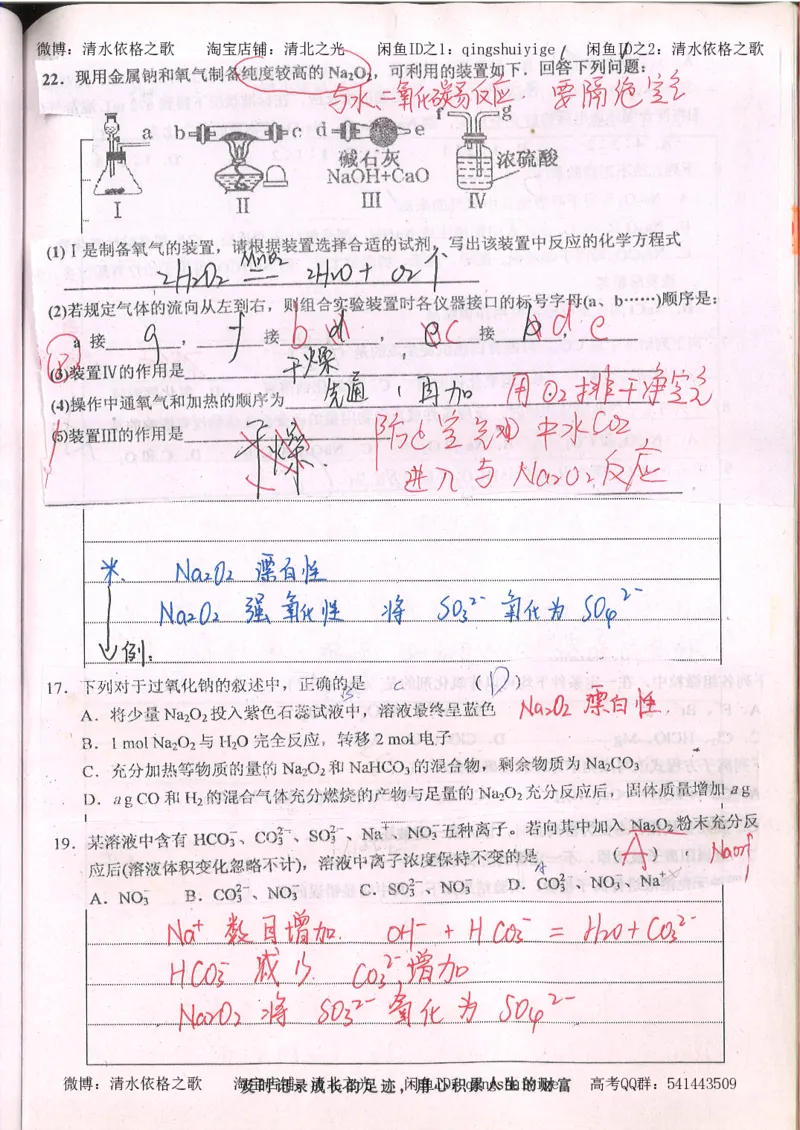 微博：清水依格之歌 淘宝店铺：清北之光 闲鱼ID之1：qingshuiyige 闲鱼ID之2：清水依格之歌
22．现用金属钠和氧气制备纯度较高的Na₂O₂，可利用的装置如下．回答下列问题：
与水二氧化碳易反应． 要隔绝空气
a b c d e f g
碱石灰 浓硫酸
NaOH+CaO
Ⅰ Ⅱ Ⅲ Ⅳ
(1)Ⅰ是制备氧气的装置，请根据装置选择合适的试剂，写出该装置中反应的化学方程式
2H₂O₂ MnO₂ 2H₂O + O₂↑
(2)若规定气体的流向从左到右，则组合实验装置时各仪器接口的标号字母(a、b……)顺序是：
a 接 g ， f 接 b ， c 接 d ， e
(3)装置Ⅳ的作用是 干燥
(4)操作中通氧气和加热的顺序为 先通，再加 用O₂排干净空气
(5)装置Ⅲ的作用是 干燥． 防止空气中水CO₂
进入与Na₂O₂反应
米． Na₂O₂ 漂白性
Na₂O₂ 强氧化性 将 SO₃²⁻ 氧化为 SO₄²⁻
例：
17．下列对于过氧化钠的叙述中，正确的是 c （D）
A．将少量Na₂O₂投入紫色石蕊试液中，溶液最终呈蓝色 Na₂O₂ 漂白性．
B．1 mol Na₂O₂与H₂O完全反应，转移2 mol电子
C．充分加热等物质的量的Na₂O₂和NaHCO₃的混合物，剩余物质为Na₂CO₃
D．a g CO和H₂的混合气体充分燃烧的产物与足量的Na₂O₂充分反应后，固体质量增加a g
19．某溶液中含有HCO₃⁻、CO₃²⁻、SO₃²⁻、Na⁺、NO₃⁻五种离子。若向其中加入Na₂O₂粉末充分反
应后(溶液体积变化忽略不计)，溶液中离子浓度保持不变的是 （A） NaOH
A．NO₃⁻ B．CO₃²⁻、NO₃⁻ C．SO₃²⁻、NO₃⁻ D．CO₃²⁻、NO₃⁻、Na⁺
Na⁺ 数目增加． OH⁻ + HCO₃⁻ = H₂O + CO₃²⁻
HCO₃⁻ 减少． CO₃²⁻增加
Na₂O₂ 将 SO₃²⁻ 氧化为 SO₄²⁻
微博：清水依格之歌 高考QQ群：541443509